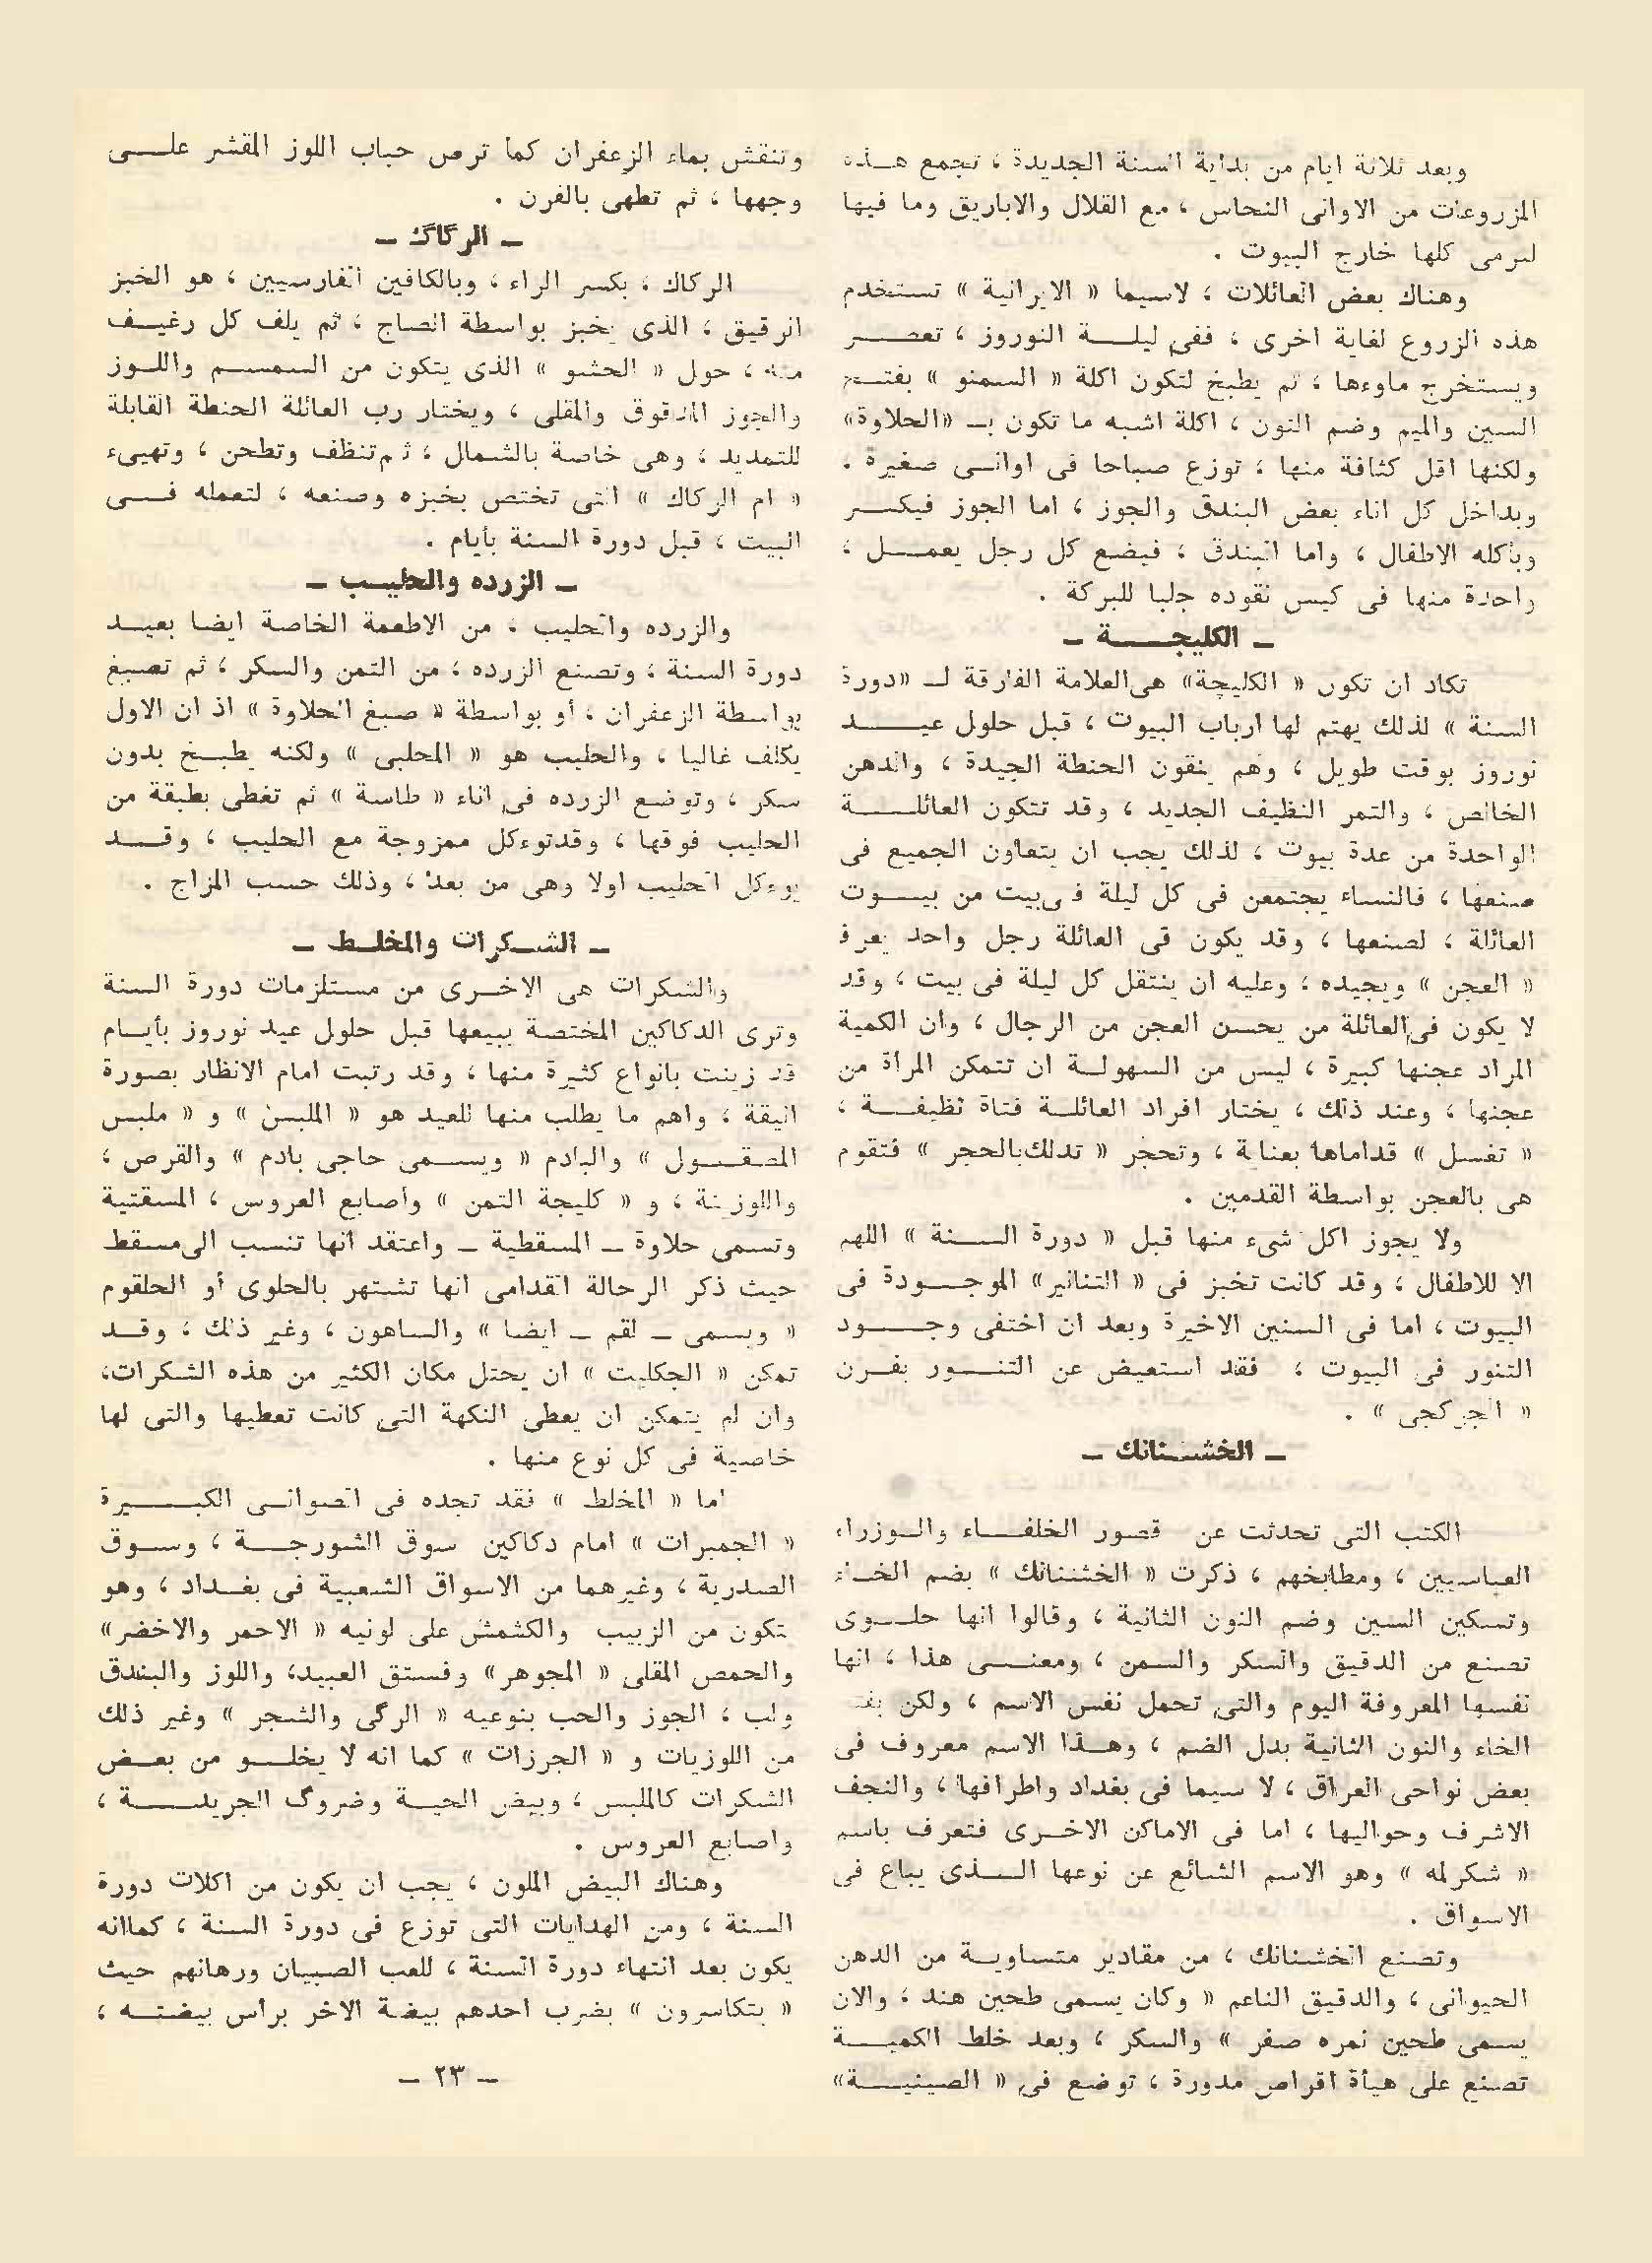 وبعد ثلاثة ايام من بداية السنة الجديدة ، تجمع هـــذه
المزروعات من الاوانى النحاس ، مع القلال والاباريق وما فيها
لترمى كلها خارج البيوت .
وهناك بعض العائلات ، لاسيما « الايرانية » تستخدم
هذه الزروع لغاية اخرى ، ففى ليلـــة النوروز ، تعصـــر
ويستخرج ماوءها ، ثم يطبخ لتكون اكلة « السمنو » بفتـــح
السين والميم وضم النون ، اكلة اشبه ما تكون بـ «الحلاوة»
ولكنها اقل كثافة منها ، توزع صباحا فى اوانـى صغيرة .
وبداخل كل اناء بعض البندق والجوز ، اما الجوز فيكســر
ويأكله الاطفال ، واما البندق ، فيضع كل رجل يعمـــل ،
واحدة منها فى كيس نقوده جلبا للبركة .
ـ الكليجـــة ـ
تكاد ان تكون « الكليچة» هى العلامة الفارقة لـ «دورة
السنة » لذلك يهتم لها ارباب البيوت ، قبل حلول عيـــد
نوروز بوقت طويل ، وهم ينقون الحنطة الجيدة ، والدهن
الخالص ، والتمر النظيف الجديد ، وقد تتكون العائلـــة
الواحدة من عدة بيوت ، لذلك يجب ان يتعاون الجميع فى
صنعها ، فالنساء يجتمعن فى كل ليلة فى بيت من بيـــوت
العائلة ، لصنعها ، وقد يكون فى العائلة رجل واحد يعرف
« العجن » ويجيده ، وعليه ان ينتقل كل ليلة فى بيت ، وقد
لا يكون فى العائلة من يحسن العجن من الرجال ، وان الكمية
المراد عجنها كبيرة ، ليس من السهولـة ان تتمكن المرأة من
عجنها ، وعند ذلك ، يختار افراد العائلـة فتاة نظيفـــة ،
« تغسل » قداماها بعناية ، وتحجر « تدلك بالحجر » فتقوم
هى بالعجن بواسطة القدمين .
ولا يجوز اكل شىء منها قبل « دورة الســـنة » اللهم
الا للاطفال ، وقد كانت تخبز فى « التنانير» الموجـــودة فى
البيوت ، اما فى السنين الاخيرة وبعد ان اختفى وجـــود
التنور فى البيوت ، فقد استعيض عن التنـــور بفـرن
« الجركجى » .
ـ الخشـــنانك ـ
الكتب التى تحدثت عن قصور الخلفـــاء والـوزراء
العباسيين ، ومطابخهم ، ذكرت « الخشنانك » بضم الخـاء
وتسكين السين وضم النون الثانية ، وقالوا انها حلـــوى
تصنع من الدقيق والسكر والسمن ، ومعنـــى هذا ، انها
نفسها المعروفة اليوم والتى تحمل نفس الاسم ، ولكن
الخاء والنون الثانية بدل الضم ، وهـذا الاسم معروف فى
بعض نواحى العراق ، لا سيما فى بغداد واطرافها ، والنجف
الاشرف وحواليها ، اما فى الاماكن الاخـرى فتعرف باسم
« شكرلمه » وهو الاسم الشائع عن نوعها الـــذى يباع فى
الاسواق .
وتصنع الخشنانك ، من مقادير متساويـة من الدهن
الحيوانى ، والدقيق الناعم « وكان يسمى طحين هند ، والان
يسمى طحين نمره صفر » والسكر ، وبعد خلط الكميـــة
تصنع على هيأة اقراص مدورة ، توضع فى « الصينيـــة»
وتنقش بماء الزعفران كما ترص حباب اللوز المقشر علـــى
وجهها ، ثم تطهى بالفرن .
ـ الرگاگ ـ
الركاك ، بكسر الراء ، وبالكافين الفارسيين ، هو الخبز
الرقيق ، الذى يخبز بواسطة الصاج ، ثم يلف كل رغيـــف
منه ، حول « الحشو » الذى يتكون من السمسـم واللـوز
والجوز المدقوق والمقلى ، ويختار رب العائلة الحنطة القابلة
للتمديد ، وهى خاصة بالشمال ، ثم تنظف وتطحن ، وتهيىء
« ام الركاك » التى تختص بخبزه وصنعه ، لتعمله فـــى
البيت ، قبل دورة السنة بأيام .
ـ الزرده والحليـــب ـ
والزرده والحليب ، من الاطعمة الخاصة ايضا بعيـــد
دورة السنة ، وتصنع الزرده ، من التمن والسكر ، ثم تصبغ
بواسطة الزعفران ، أو بواسطة « صبغ الحلاوة » اذ ان الاول
يكلف غاليا ، والحليب هو « المحلبى » ولكنه يطبـخ بدون
سكر ، وتوضع الزرده فى اناء « طاسة » ثم تغطى بطبقة من
الحليب فوقها ، وقدتوءكل ممزوجة مع الحليب ، وقـــد
يوءكل الحليب اولا وهى من بعد ، وذلك حسب المزاج .
ـ الشـــكرات والمخلـــط ـ
والشكرات هى الاخـرى من مستلزمات دورة السنة
وترى الدكاكين المختصة ببيعها قبل حلول عيد نوروز بأيـام
قد زينت بانواع كثيرة منها ، وقد رتبت امام الانظار بصورة
انيقة ، واهم ما يطلب منها للعيد هو « الملبس » و « ملبس
المصقـــول » والبادم « ويســمى حاجى بادم » والقرص ،
واللوزينة ، و « كليجة التمن » وأصابع العروس ، المسقتية
وتسمى حلاوة ـ المسقطية ـ واعتقد انها تنسب الى مسقط
حيث ذكر الرحالة القدامى انها تشتهر بالحلوى أو الحلقوم
« ويسمى ـ لقم ـ ايضا » والساهون ، وغير ذلك ، وقـــد
تمكن « الجكليت » ان يحتل مكان الكثير من هذه الشكرات،
وان لم يتمكن ان يعطى النكهة التى كانت تعطيها والتى لها
خاصية فى كل نوع منها .
اما « المخلط » فقد تجده فى الصوانـى الكبـــيرة
« الجمبرات » امام دكاكين سوق الشورجـــة ، وسـوق
الصدرية ، وغيرهما من الاسواق الشعبية فى بغـداد ، وهو
يتكون من الزبيب والكشمش على لونيه « الاحمر والاخضر»
والحمص المقلى « المجوهر» وفستق العبيد، واللوز والبندق
ولب ، الجوز والحب بنوعيه « الرگى والشجر » وغير ذلك
من اللوزيات و « الجرزات » كما انه لا يخلـــو من بعـض
الشكرات كالملبس ، وبيض الحيـة وضروگ الجريديـــة ،
واصابع العروس .
وهناك البيض الملون ، يجب ان يكون من اكلات دورة
السنة ، ومن الهدايات التى توزع فى دورة السنة ، كماانه
يكون بعد انتهاء دورة السنة ، للعب الصبيان ورهانهم حيث
« يتكاسرون » بضرب احدهم بيضة الاخر برأس بيضتـــه ،
ـ ٢٣ ـ